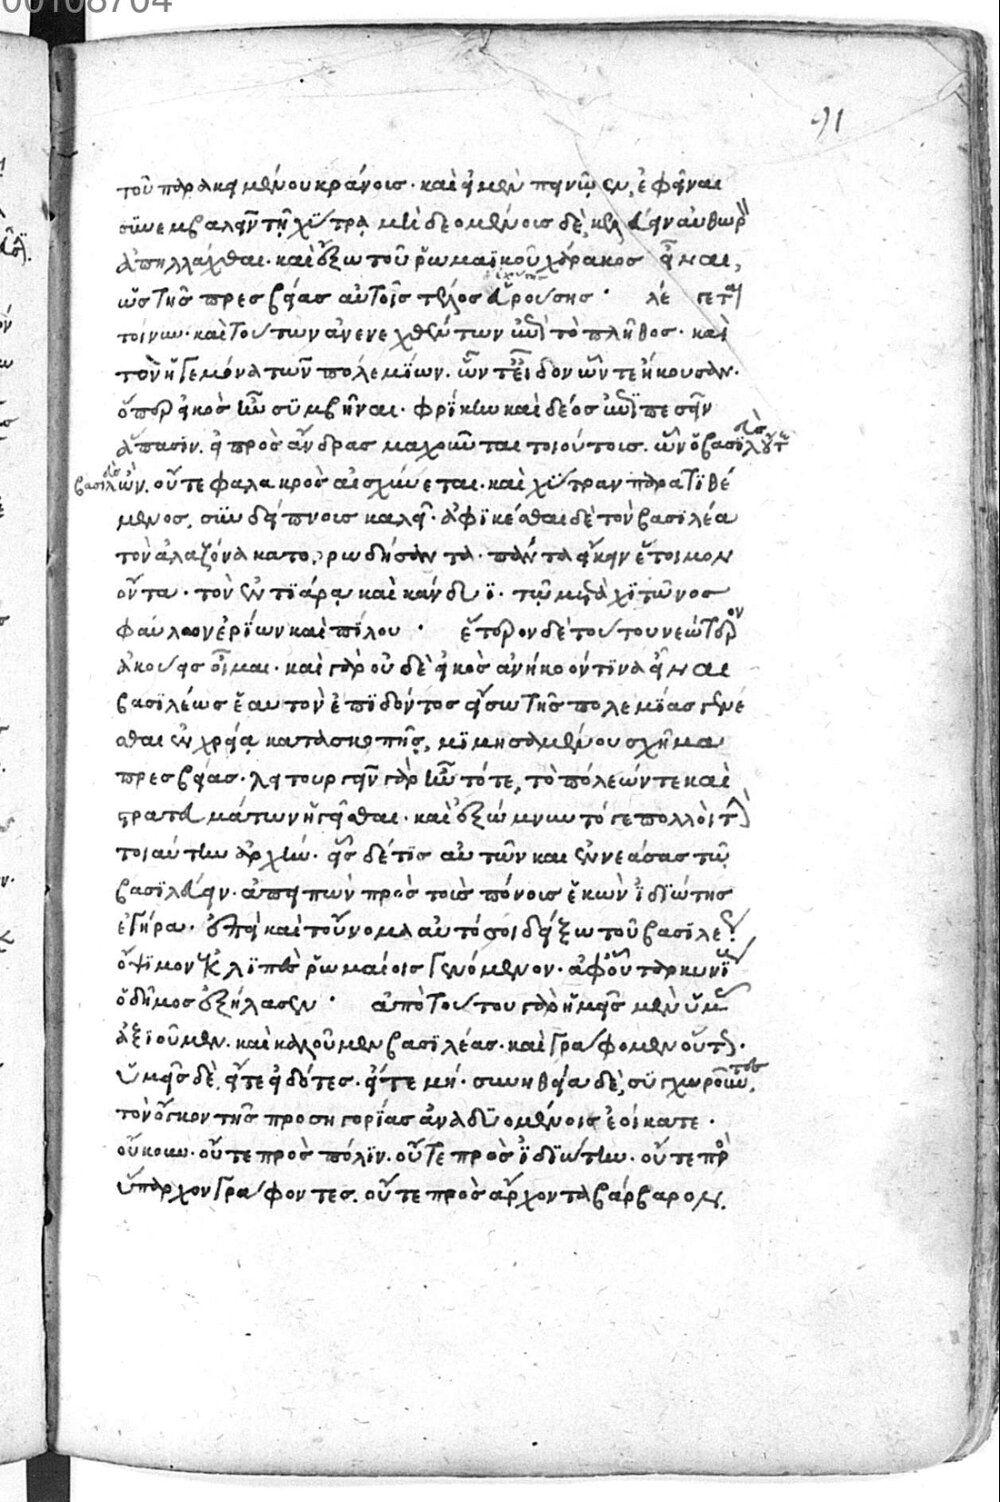 τοῦ παρακειμένου κράνοις· καὶ εἰ μὲν πεινῷεν, ἐφεῖναι
συνεμβαλεῖν τῇ χύτρᾳ μὴ δεομένοις δὲ, κελεύειν αὐθωρὸν
ἀπηλλάχθαι. καὶ ἔξω τοῦ ῥωμαϊκοῦ χάρακος εἶναι,
ἐχούσης
ὡς τῆς πρεσβείας αὐτοῖς τέλος εὑρούσης· λέγεται
τοίνυν· καὶ τούτων ἀνενεχθέντων ἐπὶ τὸ πλῆθος· καὶ
τὸν ἡγεμόνα τῶν πολεμίων. ὧν τε εἶδον ὧν τε ἤκουσαν.
ὅπερ εἰκὸς ἦν συμβῆναι. φρίκην καὶ δέος ἐπιπεσεῖν
ἅπασιν. εἰ πρὸς ἄνδρας μαχοῦνται τοιούτοις. ὧν ὁ βασιλεὺς οὔτε
βασιλεὺς ὢν. οὔτε φαλακρὸς αἰσχύνεται. καὶ χύτραν παρατιθέ
μενος, συνδείπνοις καλεῖ. ἀφικέσθαι δὲ τὸν βασιλέα
τὸν ἀλαζόνα κατορρωδήσαντα. πάντα εἴκειν ἕτοιμον
ὄντα. τὸν ἐν τιάρᾳ καὶ κάνδυϊ. τῷ μετὰ χιτῶνος
φαύλων ἐρίων καὶ πίλου· ἕτερον δὲ τούτου νεώτερον
ἀκούεις οἶμαι. καὶ γὰρ οὐδὲ εἰκὸς ἀνήκοον τινὰ εἶναι
βασιλέως ἑαυτὸν ἐπιδόντος εἴσω τῆς πολεμίας γενέ
σθαι ἐν χρείᾳ κατασκοπῆς, μιμησαμένου σχῆμα
πρεσβείας. λειτουργεῖν γὰρ ἦν τότε, τὸ πόλεών τε καὶ
στρατευμάτων ἡγεῖσθαι. καὶ ἐξώμνυντό γε πολλοὶ τὴν
τοιαύτην ἀρχήν. εἷς δέ τις αὐτῶν καὶ ἐννεάσας τῷ
βασιλεύειν. ἀπειπὼν πρὸς τοὶς πόνοις ἑκὼν ἰδιώτης
ἐγήρα. ἐπεὶ καὶ τοὔνομα αὐτό σοι δείξω τοῦ βασιλέως
ὄψιμον· ἐκλιπὲς ῥωμαίοις γενόμενον. ἀφ' οὗ ταρκυνίους
ὁ δῆμος ἐξήλασεν· ἀπὸ τούτου γὰρ ἡμεῖς μὲν ὑμᾶς
ἀξιοῦμεν. καὶ καλοῦμεν βασιλέας. καὶ γράφομεν οὕτως.
ὑμεῖς δὲ, εἴτε εἰδότες. εἴτε μή. συνηθείᾳ δὲ, συγχωροῦντες,
τὸν ὄγκον τῆς προσηγορίας ἀναδυομένοις ἐοίκατε.
οὔκουν. οὔτε πρὸς πόλιν. οὔτε πρὸς ἰδιώτην. οὔτε πρὸς
ὕπαρχον γράφοντες. οὔτε πρὸς ἄρχοντα βάρβαρον.